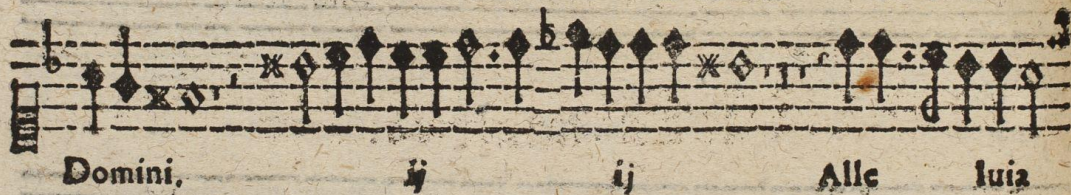 Domini, ij ij Alle luia